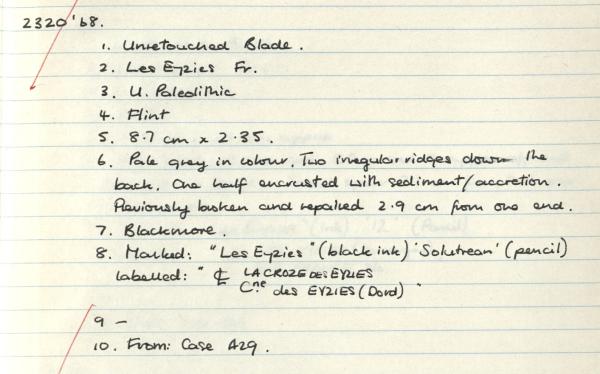 2320'68.
1. Unretouched Blade.
2. Les Eyzies Fr.
3. U. Paleolithic
4. Flint
5. 8.7 cm x 2.35.
6. Pale grey in colour. Two irregular ridges down the
back. One half encrusted with sediment/accretion.
Previously broken and repaired 2.9 cm from one end.
7. Blackmore.
8. Marked: "Les Eyzies" (black ink) 'Solutrean' (pencil)
labelled: " LA CROZE DES EYZIES
Cne des EYZIES (Dord) "
9 –
10. From: Case A29.